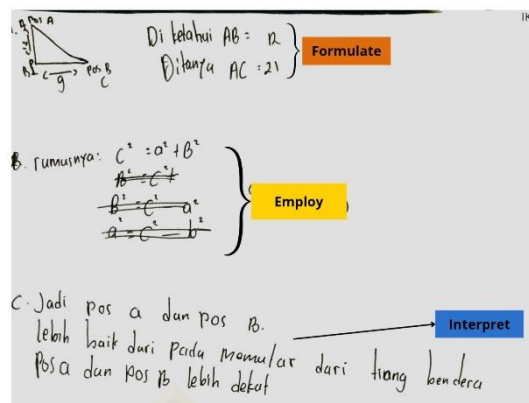 Pos A
Pos B
9
C
Di ketahui AB = 12
Ditanya AC = 21
Formulate
B. rumusnya: C² = a² + B²
B² = C² +
B² = C² a²
a² = C² - b²
Employ
C. Jadi pos a dan pos B.
lebih baik dari pada memutar dari tiang bendera
Pos a dan pos B lebih dekat
Interpret